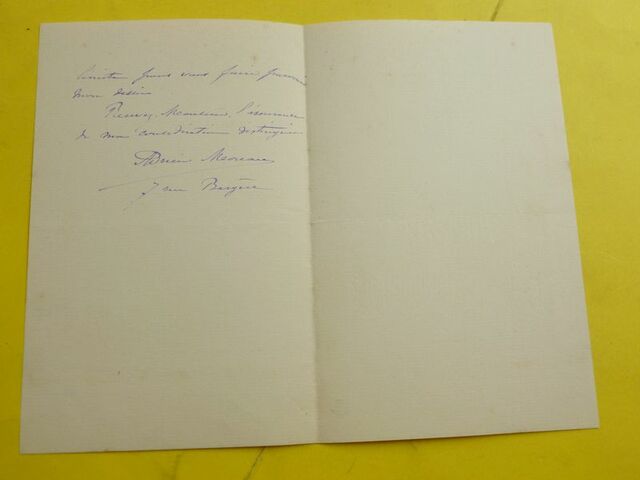 pour vous faire parvenir
mon dessin
Recevez Monsieur, l'assurance
de ma considération distinguée
Adrien Moreau
7 rue Bergère